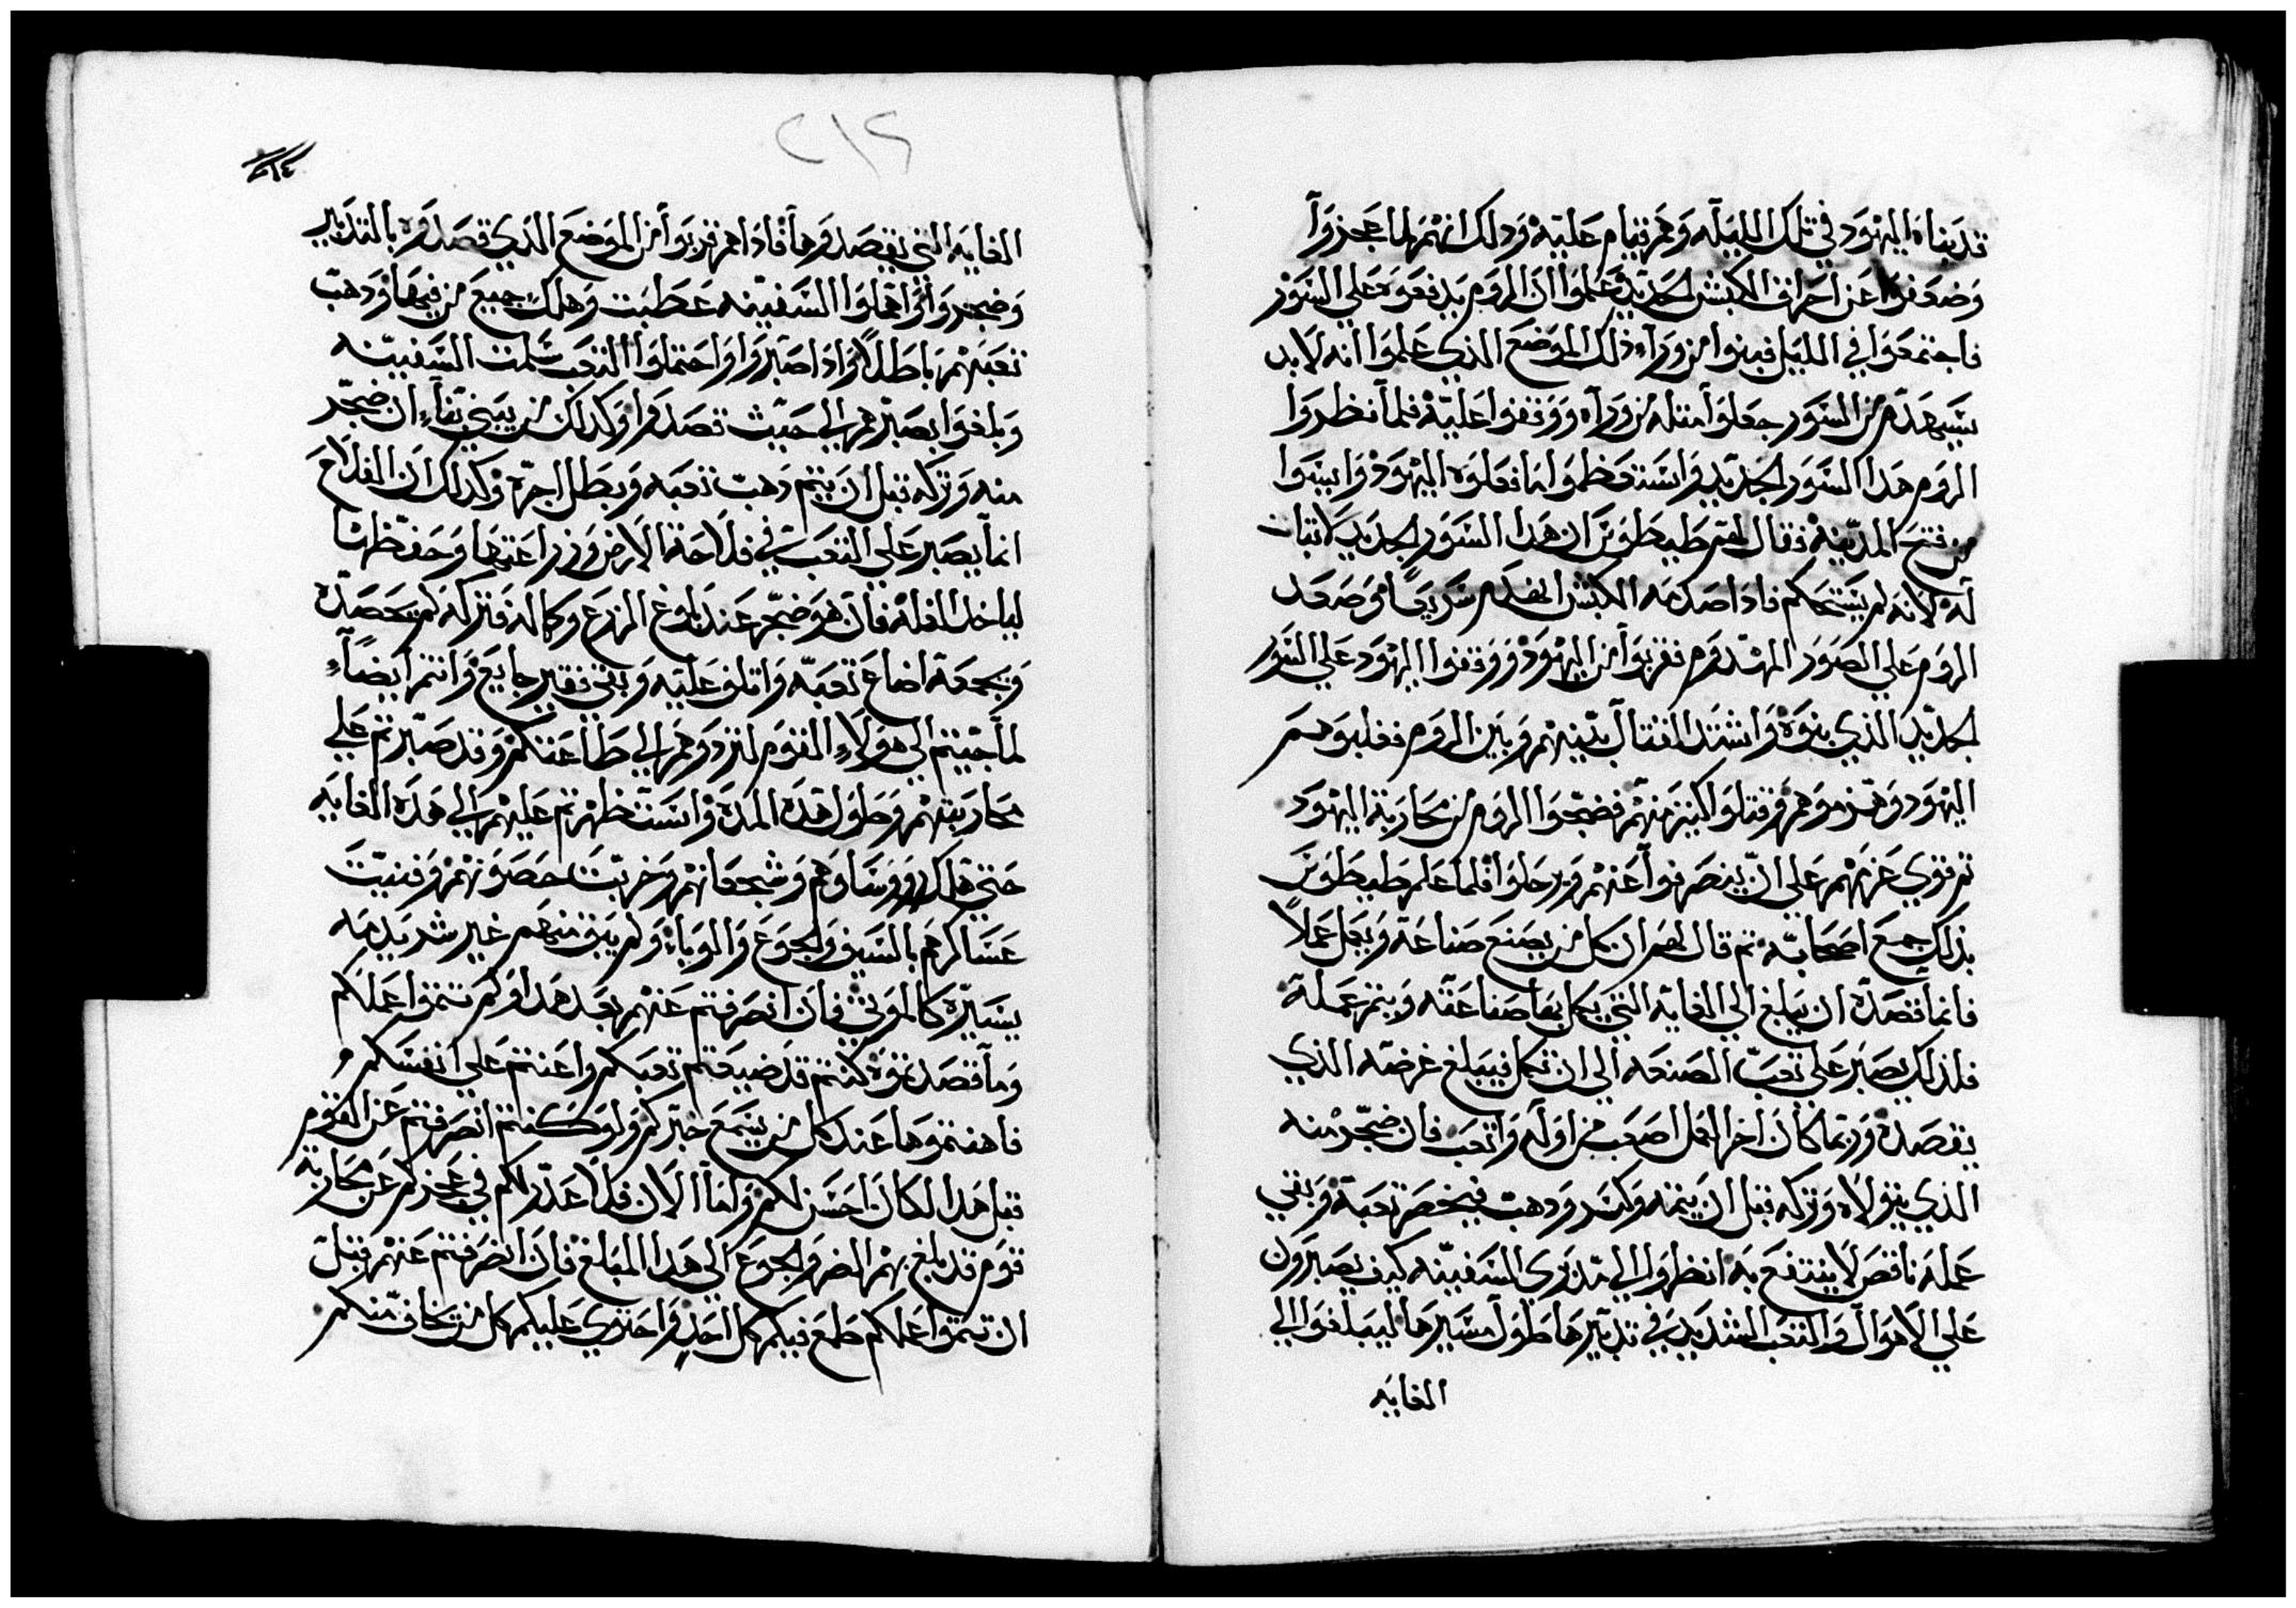 قد بناه اليهود في تلك الليله وهم قيام عليه وذلك انهم لما عجزوا
وضعفوا عن احراق الكبش الحديد وعلموا ان الروم يدفعوه علي السور
فاجتمعوا في الليل فبنوا من ورآء ذلك الموضع الذي علموا انه لا بد
سيهدم من السور جعلوا مثله من ورآه ووقفوا عليه فلما نظروا
الروم هذا السور الجديد فاستعظموا ما فعلوه اليهود وايسوا
من فتح المدينه فقال لهم طيطوس ان هذا السور الجديد لا تبات
له لانه لم يستحكم فاذا صدمه الكبش انهدم سريعاً وصعد
الروم علي الصور المهدوم فقربوا من اليهود ووقفوا اليهود علي السور
الجديد الذي بنوه واشتد القتال بينهم وبين الروم فغلبوهم
اليهود وهزموهم وقتلوا كثير منهم فضجوا الروم من محاربة اليهود
ثم قوي عزمهم علي ان ينصرفوا عنهم ويرحلوا فلما علم طيطوس
بذلك جمع اصحابه ثم قال لهم ان كل من يصنع صناعة ويعمل عملاً
فانما قصده ان يبلغ الي الغايه التي يكمل بها صناعته ويتم عمله
فلذلك يصبر علي تعب الصنعه الي ان تكمل فيبلغ غرضه الذي
يقصده وربما كان اخر العمل اصعب من اوله واتعب فان ضجر منه
الذي يتولاه وتركه قبل ان يتمه وكسر ودهب فيخصر تعبه وبقي
عمله ناقص لا ينتفع به انظروا الي مدبري السفينه كيف يصبرون
علي الاهوال والتعب الشديد في تدبيرها وطول مسيرها ليبلغوا الي
الغايه
٢١٢
٢١٤
الغايه التي يقصدوها فاذا هم قربوا من الموضع الذي قصدوه بالتدبير
وضجروا واهملوا السفينه عطبت وهلك جميع من فيها ودهب
تعبهم باطلاً واذا صبروا واحتملوا التعب سلمت السفينه
وبلغوا بصبرهم الي حيث قصدوا وكذلك من يبني بنآء ان ضجر
منه وتركه قبل ان يتم دهب تعبه وبطل اجره وكذلك ان الفلاح
انما يصبر علي التعب في فلاحة الارض وزراعتها وحفظها
لياخد الغله فان هو ضجر عند بلوغ الزرع وكماله فتركه لم يحصده
ويجمعه اضاع تعبه واتلف غلته وبقي فقير جايع وانتم ايضاً
لما جيتم الي هولاء القوم لتردوهم الي طاعتكم وقد صبرتم علي
محاربتهم وطول هده المدة واستظهرتم عليهم الي هذه الغايه
حتي هلك رووساوهم وشجعانهم وخربت حصونهم وفنيت
عساكرهم بالسيف والجوع والوباء ولم يبق منهم غير شرذمه
يسيره كالموتي فان انصرفتم عنهم بعد هدا ولم تتموا عملكم
وما قصدتموه كنتم قد ضيعتم تعبكم واعنتم علي انفسكم
فاهنتموها عند كل من يسمع خبركم ولو كنتم انصرفتم عن القوم
قبل هدا لكان احسن لكم واما الان فلا عدر لكم في عجزكم عن محاربة
قوم قد بلغ بهم الضر والجوع الي هدا المبلغ فان انصرفتم عنهم قبل
ان تتموا عملكم طمع فيكم كل احد واجتري عليكم كل من يخاف منكم